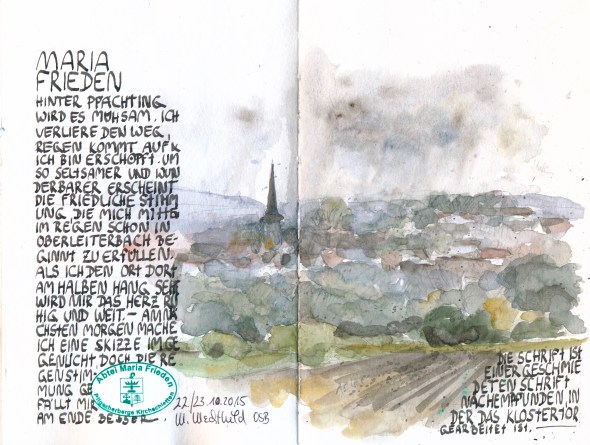 MARIA
FRIEDEN
HINTER PFACHTING
WIRD ES MÜHSAM. ICH
VERLIERE DEN WEG,
REGEN KOMMT AUF
ICH BIN ERSCHÖPFT. UM
SO SELTSAMER UND WUN
DERBARER ERSCHEINT
DIE FRIEDLICHE STIMM
UNG, DIE MICH MITTE
IM REGEN SCHON IN
OBERLEITERBACH BE-
GINNT ZU ERFÜLLEN.
ALS ICH DEN ORT DORT
AM HALBEN HANG SEHE
WIRD MIR DAS HERZ RU
HIG UND WEIT. — AM NÄ
CHSTEN MORGEN MACHE
ICH EINE SKIZZE IM GE
GENLICHT DOCH DIE RE
GENSTIM-
MUNG GE
FÄLLT MIR
AM ENDE BESSER.
Abtei Maria Frieden
Pilgerherberge Kirchschletten
22/23.10.2015
OSB
DIE SCHRIFT IST
EINER GESCHMIE
DETEN SCHRIFT
NACHEMPFUNDEN, IN
DER DAS KLOSTERTOR
GEARBEITET IST.